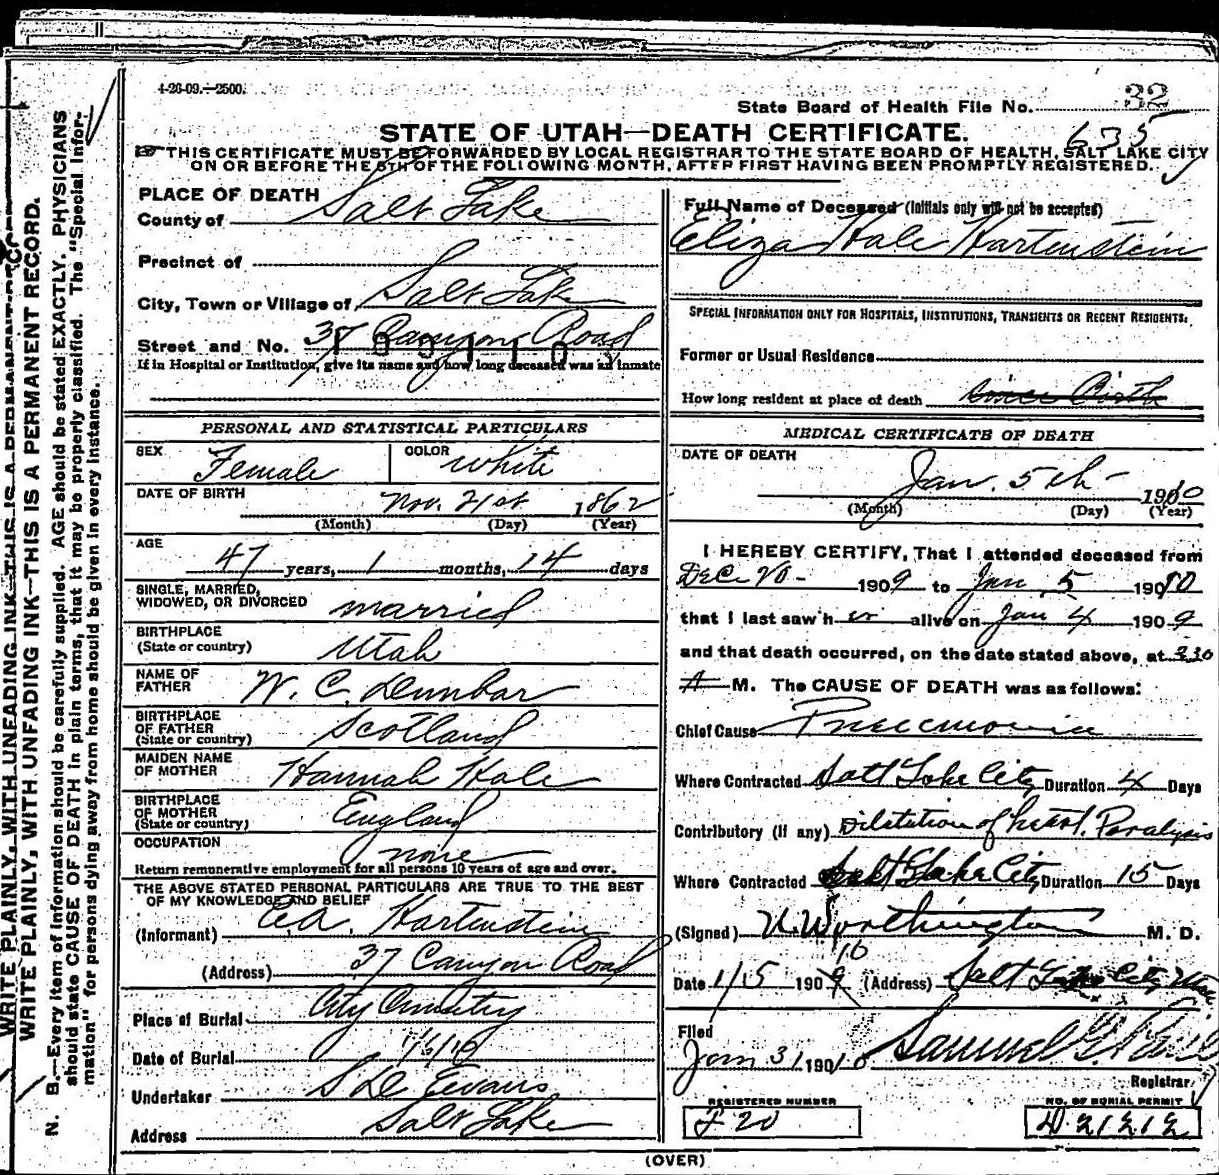 4-26-09.—2500.
State Board of Health File No. 32
635
STATE OF UTAH—DEATH CERTIFICATE.
☞ THIS CERTIFICATE MUST BE FORWARDED BY LOCAL REGISTRAR TO THE STATE BOARD OF HEALTH, SALT LAKE CITY
ON OR BEFORE THE 5TH OF THE FOLLOWING MONTH, AFTER FIRST HAVING BEEN PROMPTLY REGISTERED.
PLACE OF DEATH
County of Salt Lake
Precinct of
City, Town or Village of Salt Lake
Street and No. 37 Canyon Road
If in Hospital or Institution, give its name and how long deceased was an inmate
PERSONAL AND STATISTICAL PARTICULARS
SEX Female COLOR White
DATE OF BIRTH Nov. 21st 1862
(Month) (Day) (Year)
AGE
47 years, 1 months, 14 days
SINGLE, MARRIED,
WIDOWED, OR DIVORCED married
BIRTHPLACE
(State or country) Utah
NAME OF
FATHER W. C. Dunbar
BIRTHPLACE
OF FATHER
(State or country) Scotland
MAIDEN NAME
OF MOTHER Hannah Hale
BIRTHPLACE
OF MOTHER
(State or country) England
OCCUPATION none
Return remunerative employment for all persons 10 years of age and over.
THE ABOVE STATED PERSONAL PARTICULARS ARE TRUE TO THE BEST
OF MY KNOWLEDGE AND BELIEF
(Informant) C.A. Hartenstein
(Address) 37 Canyon Road
Place of Burial City Cemetry
Date of Burial 1/6/10
Undertaker S D Evans
Address Salt Lake
Full Name of Deceased (Initials only will not be accepted)
Eliza Hale Hartenstein
SPECIAL INFORMATION ONLY FOR HOSPITALS, INSTITUTIONS, TRANSIENTS OR RECENT RESIDENTS:
Former or Usual Residence
How long resident at place of death since Birth
MEDICAL CERTIFICATE OF DEATH
DATE OF DEATH
Jan. 5th 1910
(Month) (Day) (Year)
I HEREBY CERTIFY, That I attended deceased from
Dec. 20 - 1909 to Jan 5 1910
that I last saw h er alive on Jan 4 1909
and that death occurred, on the date stated above, at 230
A M. The CAUSE OF DEATH was as follows:
Chief Cause Pneumonia
Where Contracted Salt Lake City Duration 4 Days
Contributory (if any) Dilatation of heart. Paralysis
Where Contracted Salt Lake City Duration 15 Days
(Signed) U. Worthington M. D.
10
Date 1/5 1909 (Address) Salt Lake City Utah
Filed
Jan 31 1910 Samuel G. Paul
Registrar
REGISTERED NUMBER
F 20
NO. OF BURIAL PERMIT
D 21212
(OVER)
WRITE PLAINLY, WITH UNFADING INK—THIS IS A PERMANENT RECORD.
WRITE PLAINLY, WITH UNFADING INK—THIS IS A PERMANENT RECORD.
N. B.—Every item of information should be carefully supplied. AGE should be stated EXACTLY. PHYSICIANS
should state CAUSE OF DEATH in plain terms, that it may be properly classified. The "Special Infor-
mation" for persons dying away from home should be given in every instance.